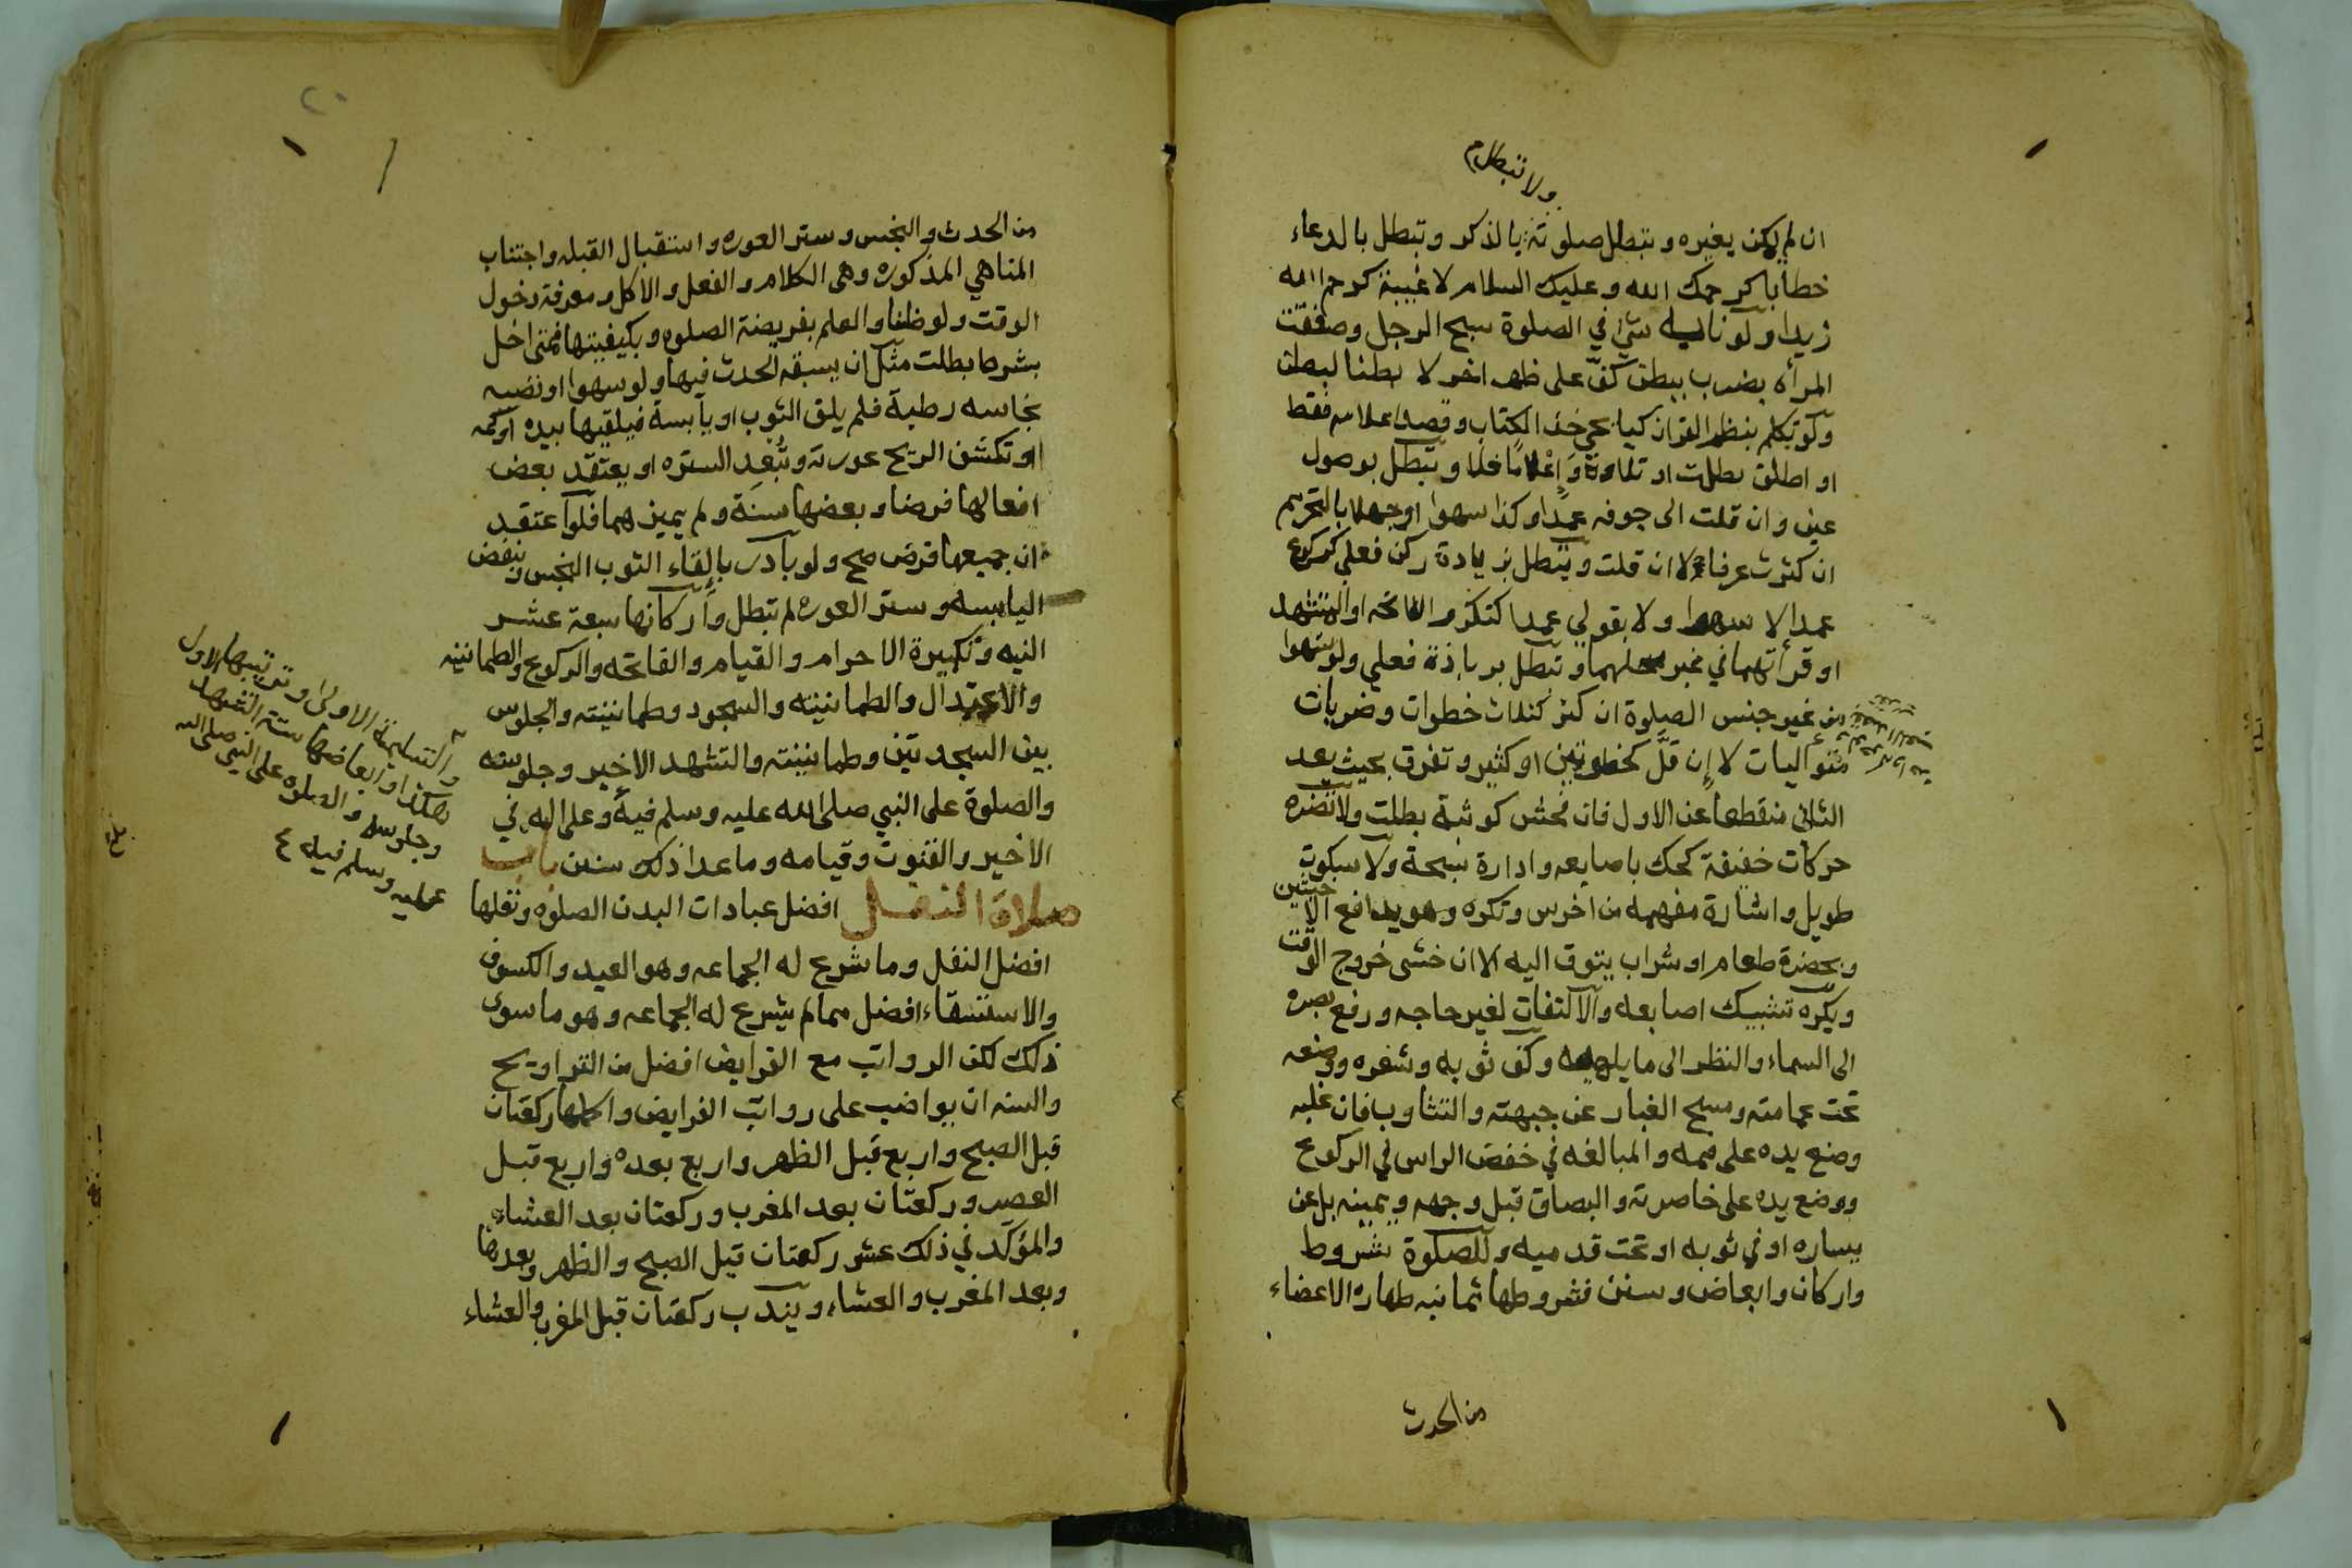 ولا تبطل
ان لم يكن بغيره وتبطل صلوته بالذكر وتبطل بالدعاء
خطابا كرحمك الله وعليك السلام لا غيبة كرحم الله
زيدا ولو نابه شئ في الصلوة سبح الرجل وصفقت
المرأه بضرب ببطن كفّ على ظهر اخر لا بطنا لبطن
ولو تكلم بنظم القران كيا يحي خذ الكتاب وقصد اعلامه فقط
او اطلق بطلت او تلاوة وَإِعْلامًا فلا وتبطل بوصول
عين وان قلت الى جوفه عمدا وكذا سهوا او جهلا بالتحريم
ان كثرت عرفا لا ان قلت وتبطل بزيادة ركن فعلي كركوع
عمدا لا سهوا ولا بقولي عمدا كتكرر الفاتحه او التشهد
او قرأتهما في غير محلهما وتبطل بزيادة فعلي ولو سهوا
من غير جنس الصلوة ان كثر كثلاث خطوات وضربات
متواليات لا إن قلَّ كخطوتين او كثير وتفرق بحيث يعد
الثاني منقطعا عن الاول فان فحش كوثبة بطلت ولا تضره
حركات خفيفة كحك باصابعه وادارة سبحة ولا سكوت
طويل واشارة مفهمه من اخرس وتكره وهو يدافع الاخبثين
وبحضرة طعام او شراب يتوق اليه الا ان خشى خروج الوقت
ويكره تشبيك اصابعه والالتفات لغير حاجه ورفع بصره
الى السماء والنظر الى ما يلهيه وكف ثوبه وشعره ووضعه
تحت عمامته ومسح الغبار عن جبهته والتثاوب فان غلبه
وضع يده على فمه والمبالغه في خفض الراس في الركوع
ووضع يده على خاصرته والبصاق قبل وجهه ويمينه بل عن
يساره او في ثوبه او تحت قدميه وللصلوة شروط
واركان وابعاض وسنن فشروطها ثمانيه طهاره الاعضاء
من الحدث
من الحدث والنجس وستر العوره واستقبال القبله واجتناب
المناهي المذكوره وهى الكلام والفعل والاكل ومعرفة دخول
الوقت ولو ظنا والعلم بفريضة الصلوه وبكيفيتها فمتى اخل
بشرط بطلت مثل ان يسبقه الحدث فيها ولو سهوا او تصيبه
نجاسه رطبة فلم يلق الثوب او يابسة فيلقيها بيده او كمه
او تكشف الريح عورته وتُبعد الستره او يعتقد بعض
افعالها فرضا وبعضها سنة ولم يميزهما فلو اعتقد
ان جميعها فرض صح ولو بادر بالقاء الثوب النجس ونفض
اليابسه وستر العوره لم تبطل واركانها سبعة عشر
النيه وتكبيرة الاحرام والقيام والفاتحه والركوع والطمانينه
والاعتدال والطمانينه والسجود وطمانينته والجلوس
بين السجدتين وطمانينته والتشهد الاخير وجلوسه
والصلوة على النبي صلى الله عليه وسلم فيه وعلى اله في
الاخير والقنوت وقيامه وما عدا ذلك سنن باب
صلاة النفل افضل عبادات البدن الصلوه ونفلها
افضل النفل وما شرع له الجماعه وهو العيد والكسوف
والاستسقاء افضل مما لم يشرع له الجماعه وهو ما سوى
ذلك لكن الرواتب مع الفرايض افضل من التراويح
والسنه ان يواضب على رواتب الفرايض واكملها ركعتان
قبل الصبح واربع قبل الظهر واربع بعده واربع قبل
العصر وركعتان بعد المغرب وركعتان بعد العشاء
والمؤكد في ذلك عشر ركعتان قبل الصبح والظهر وبعدها
وبعد المغرب والعشاء ويندب ركعتان قبل المغرب والعشاء
والتسليمة الاولى وترتيبها الاول
هكذا وابعاضها ستة التشهد
وجلوسه والصلوه على النبي صلى الله
عليه وسلم فيه